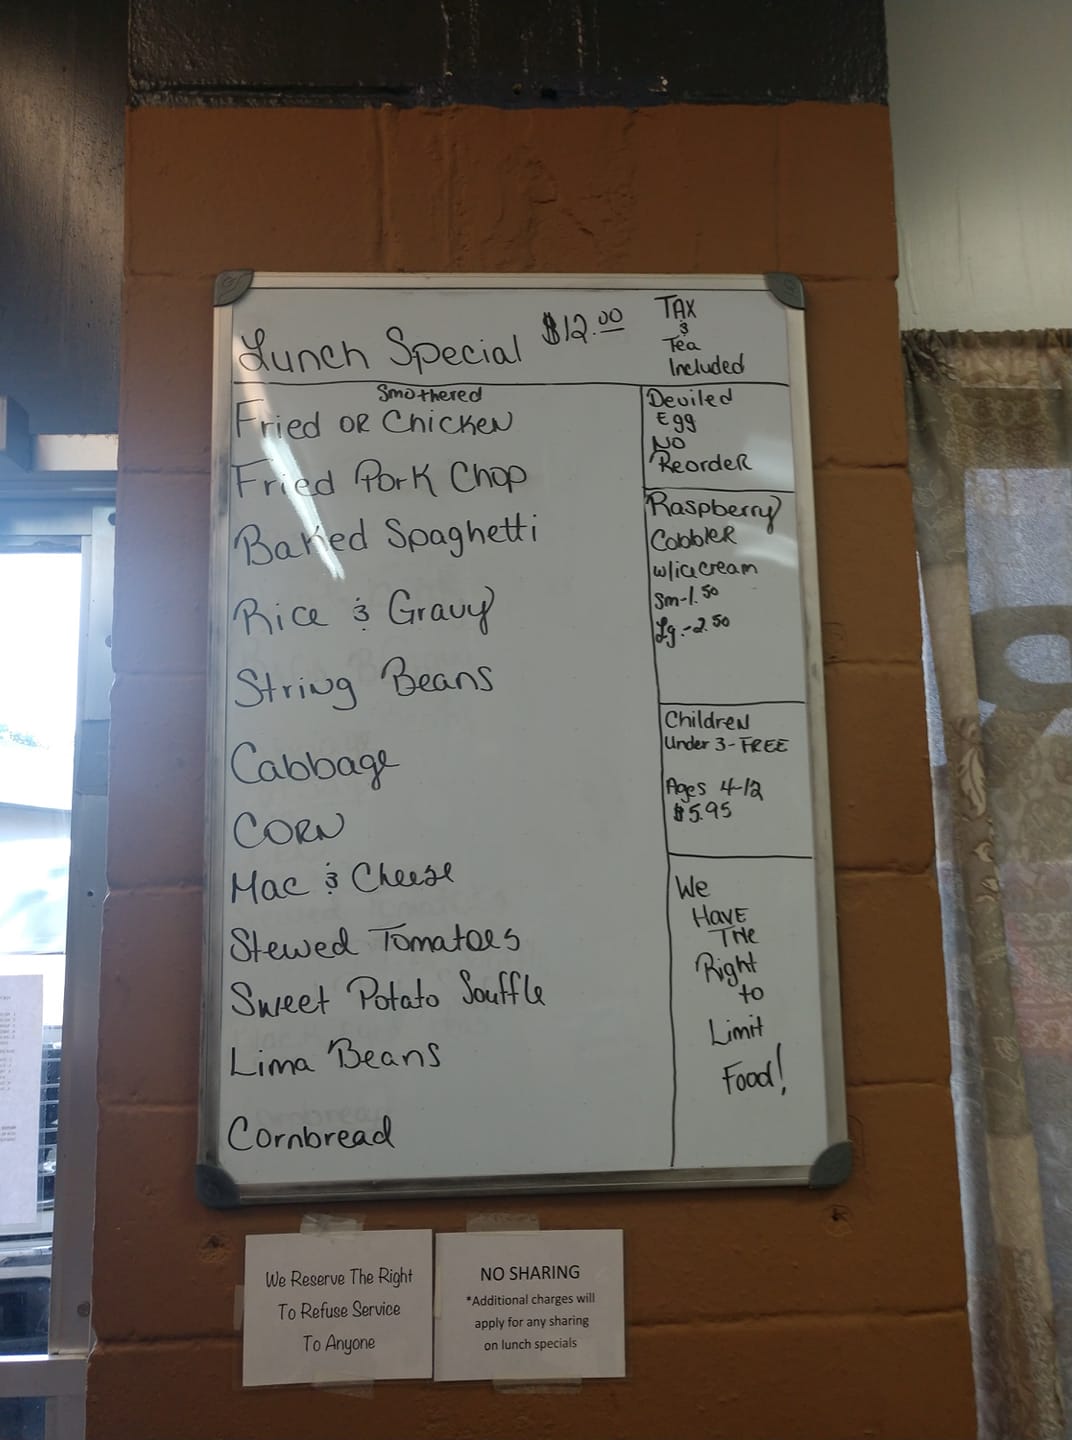 Lunch Special $12.00
TAX
&
Tea
Included
Smothered
Fried OR Chicken
Fried Pork Chop
Baked Spaghetti
Rice & Gravy
String Beans
Cabbage
CORN
Mac & Cheese
Stewed Tomatoes
Sweet Potato Souffle
Lima Beans
Cornbread
Deviled
Egg
NO
Reorder
Raspberry
Cobbler
w/ice cream
Sm-1.50
Lg.-2.50
Children
Under 3-FREE
Ages 4-12
$5.95
We
HAVE
THE
Right
to
Limit
Food!
We Reserve The Right
To Refuse Service
To Anyone
NO SHARING
*Additional charges will
apply for any sharing
on lunch specials